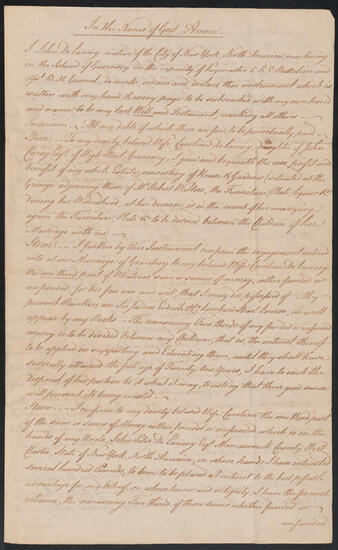 In the Name of God Amen
I John De Lancey native of the City of New York, North America, now living
in the Island of Guernsey in the capacity of Paymaster 5 R. V. Battalion and
Asst. B. M. General, do make, ordain and declare this instrument which is
written with my hand & every page to be subscribed with my own hand
and name to be my last Will and Testament, revoking all others
Imprimis. All my debts, of which there are few, to be punctually paid
Item. To my dearly beloved Wife Caroline De Lancey daughter of John
Carey Esqr. of High Street Guernsey, I give and bequeath the use, profit and
benefit of my whole Estate, consisting of House & Gardens situated at the
Grange adjoining those of Mr. Robert Walters, the Furniture, Plate, Liquors &c
during her Widowhood, at her decease, or in the event of her marrying
again the Furniture, Plate &c to be divided between the Children of her
Marriage with me
Item. I further by this Instrument confirm the engagement entered
into at our Marriage of Guernsey to my beloved Wife Caroline De Lancey
the one third part of Whatever sum or sums of money, either funded or
unfunded for her free use and will, that I may die possessed of. My
present Bankers are Sir James Esdaile & Co. Lombard Street London, as will
appear by my Books. The remaining Two thirds of my funded or unfunded
money is to be divided between my Children, that is, the interest thereof
to be applied in supporting and Educating them, until they shall have
severally attained the full age of Twenty One Years, I leave to each the
disposal of his portion to it what it may, trusting that their good sense
will prevent its being wasted
Item. I confirm to my dearly beloved Wife Caroline the one third part
of the sum or sums of Money either funded or unfunded which is in the
hands of my Uncle John Peter De Lancey Esqr. Mamaroneck County West
Chester, State of New York, North America, in whose hands I have intrusted
several hundred Pounds, to him to be placed at interest to the best possible
advantage for my behoof, on whose honor and integrity, I have the firmest
reliance, the remaining Two thirds, of these sums whether funded or
unfunded